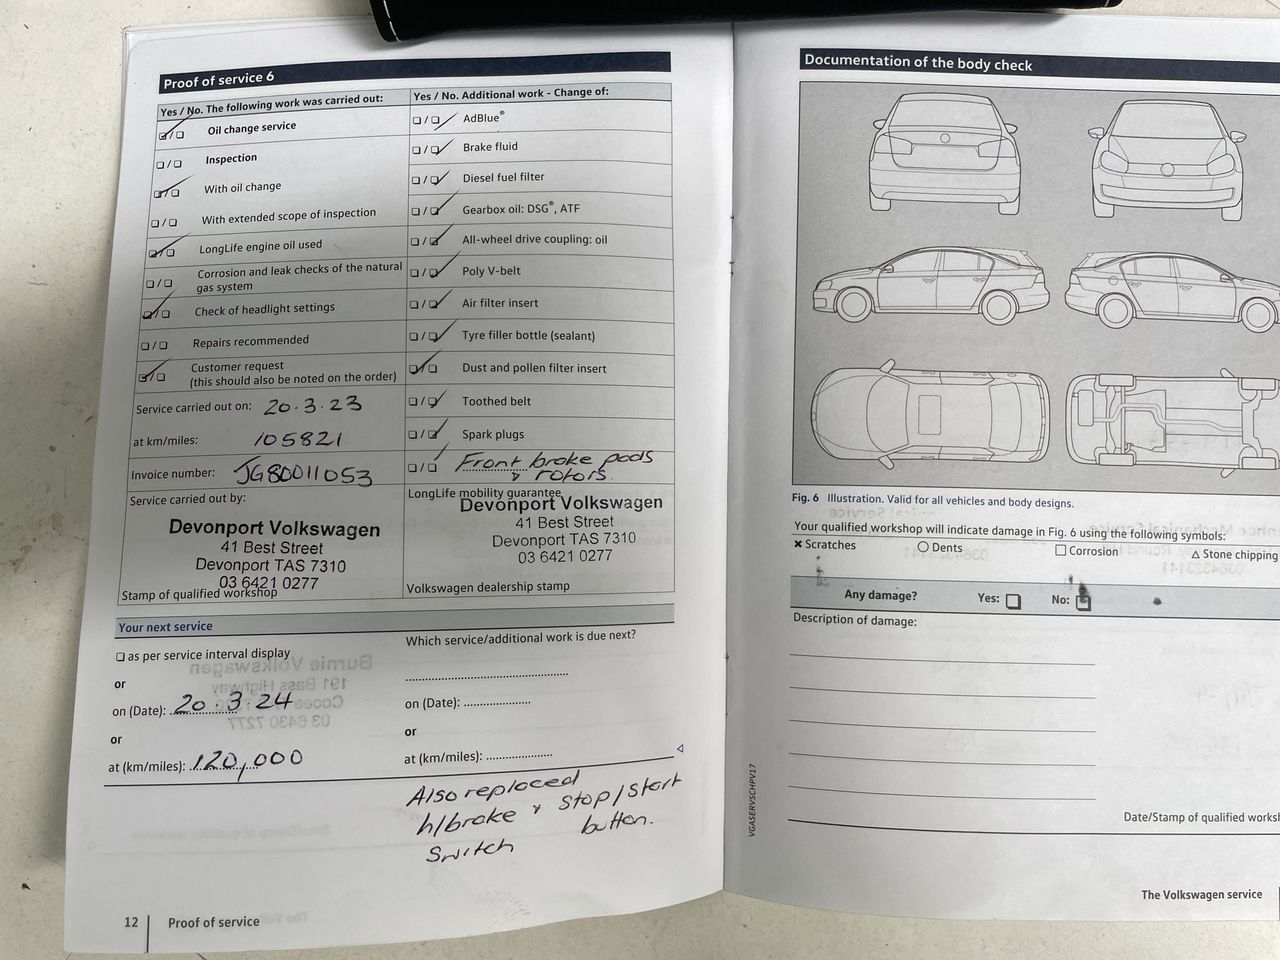 Proof of service 6
Yes / No. The following work was carried out:
Oil change service
Inspection
With oil change
With extended scope of inspection
LongLife engine oil used
Corrosion and leak checks of the natural
gas system
Check of headlight settings
Repairs recommended
Customer request
(this should also be noted on the order)
Service carried out on: 20.3.23
at km/miles: 105821
Invoice number: JG80011053
Service carried out by:
Devonport Volkswagen
41 Best Street
Devonport TAS 7310
03 6421 0277
Stamp of qualified workshop
Yes / No. Additional work - Change of:
AdBlue®
Brake fluid
Diesel fuel filter
Gearbox oil: DSG®, ATF
All-wheel drive coupling: oil
Poly V-belt
Air filter insert
Tyre filler bottle (sealant)
Dust and pollen filter insert
Toothed belt
Spark plugs
Front brake pads
& rotors.
LongLife mobility guarantee
Devonport Volkswagen
41 Best Street
Devonport TAS 7310
03 6421 0277
Volkswagen dealership stamp
Your next service
as per service interval display
or
on (Date): 20.3 24
or
at (km/miles): 120,000
Which service/additional work is due next?
on (Date):
or
at (km/miles):
Also replaced
h/brake & Stop/Start
Switch button.
12 Proof of service
Documentation of the body check
Fig. 6 Illustration. Valid for all vehicles and body designs.
Your qualified workshop will indicate damage in Fig. 6 using the following symbols:
Scratches Dents Corrosion Stone chipping
Any damage? Yes: No:
Description of damage:
VGASERVSCHPV17
Date/Stamp of qualified
The Volkswagen service